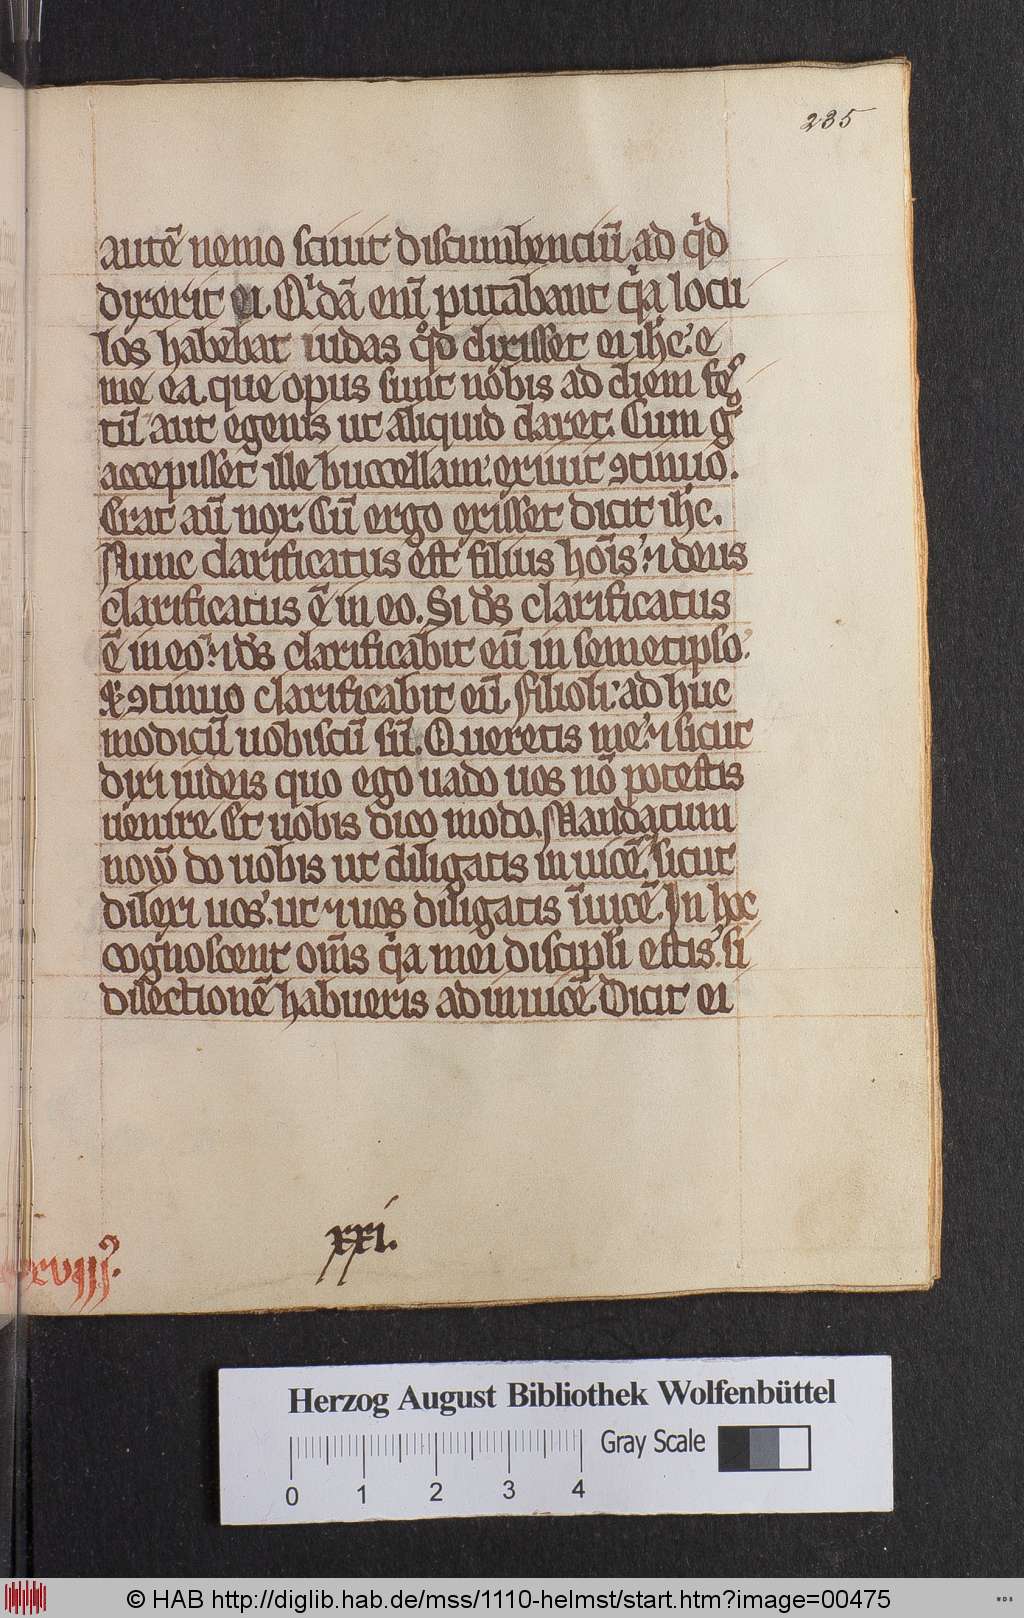 235
autē nemo sciuit discumbenciū ad qͥd
dixerit ei. Qͥdā enī putabant qͥa locu
los habebat iudas qͦd dixisset ei ihc̄. e
me ea que opus sunt nobis ad diem fes
tū aut egenis ut aliquid daret. Cum gͦ
accepisset ille buccellam. exiuit ꝯtinuo.
Erat aū nox. Cū ergo exisset dicit ihc̄.
Nunc clarificatus est filius hoīs. ⁊ deus
clarificatus ē in eo. Si ds̄ clarificatus
ē in eo. ⁊ ds̄ clarificabit eū in semetipso.
Et ꝯtinuo clarificabit eū. Filioli adhuc
modicū uobiscū sū. Queretis me. ⁊ sicut
dixi iudeis quo ego uado uos nō potestis
uenire. Et uobis dico modo. Mandatum
nouū do uobis ut diligatis inuicē. sicut
dilexi uos. ut ⁊ uos diligatis īuicē. In hoc
cognoscent om̄s qͥa mei discipli estis. si
dilectionē habueris adinuicē. Dicit ei
xxi.
Herzog August Bibliothek Wolfenbüttel
Gray Scale
0 1 2 3 4
© HAB http://diglib.hab.de/mss/1110-helmst/start.htm?image=00475